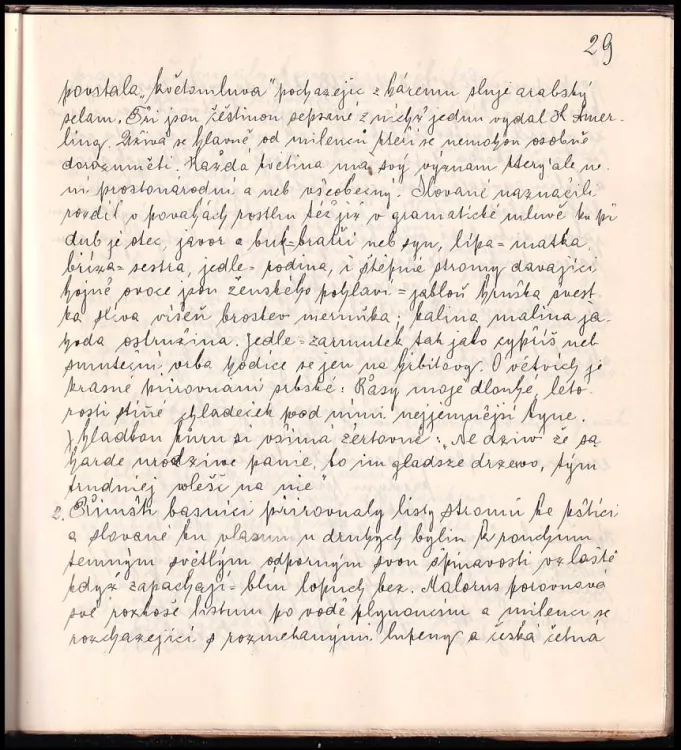 29
povstala „květomluva" pocházejíc z háremu sluje arabský
selam. Tři jsou češtinou sepsané z nichž jednu vydal K Amer-
ling. Užívá se hlavně od milenců kteří se nemohou osobně
dorozuměti. Každá květina má svý význam který ale ne-
ní prostonárodní a neb všeobecný. Slované naznačili
rozdíl v povahách rostlin též již v gramatické mluvě ku př
dub je otec, javor a buk = bratři neb syn, lípa = matka,
bříza = sestra, jedle = rodina, i štěpné stromy dávající
hojné ovoce jsou ženského pohlaví = jabloň hruška švest-
ka slíva višeň broskev meruňka; kalina malina ja-
hoda ostružina. Jedle = zármutek tak jako cypřiš neb
smuteční vrba hodíce se jen na hřbitovy. O větvích je
krásné přirovnání srbské: Řasy moje dlouhé, léto-
rosti stíné hladeček pod nimi nejjemnější tyne.
Hladkou kůru si všímá žertovné: „Ne dziw že są
harde urodziwe panie, bo im gladsze drzewo, tým
trudniej wleść na nie"
2. Římští básníci přirovnaly listy stromů ke kštici
a slované ku vlasům u druhých bylin k rouchům
temným světlým odporným svou špinavostí vzláště
když zapáchají = blín lopuch bez. Malorus porovnává
své rozkoše listům po vodě plynoucím a milenci se
rozcházející s rozmetanými lupeny a česká četná